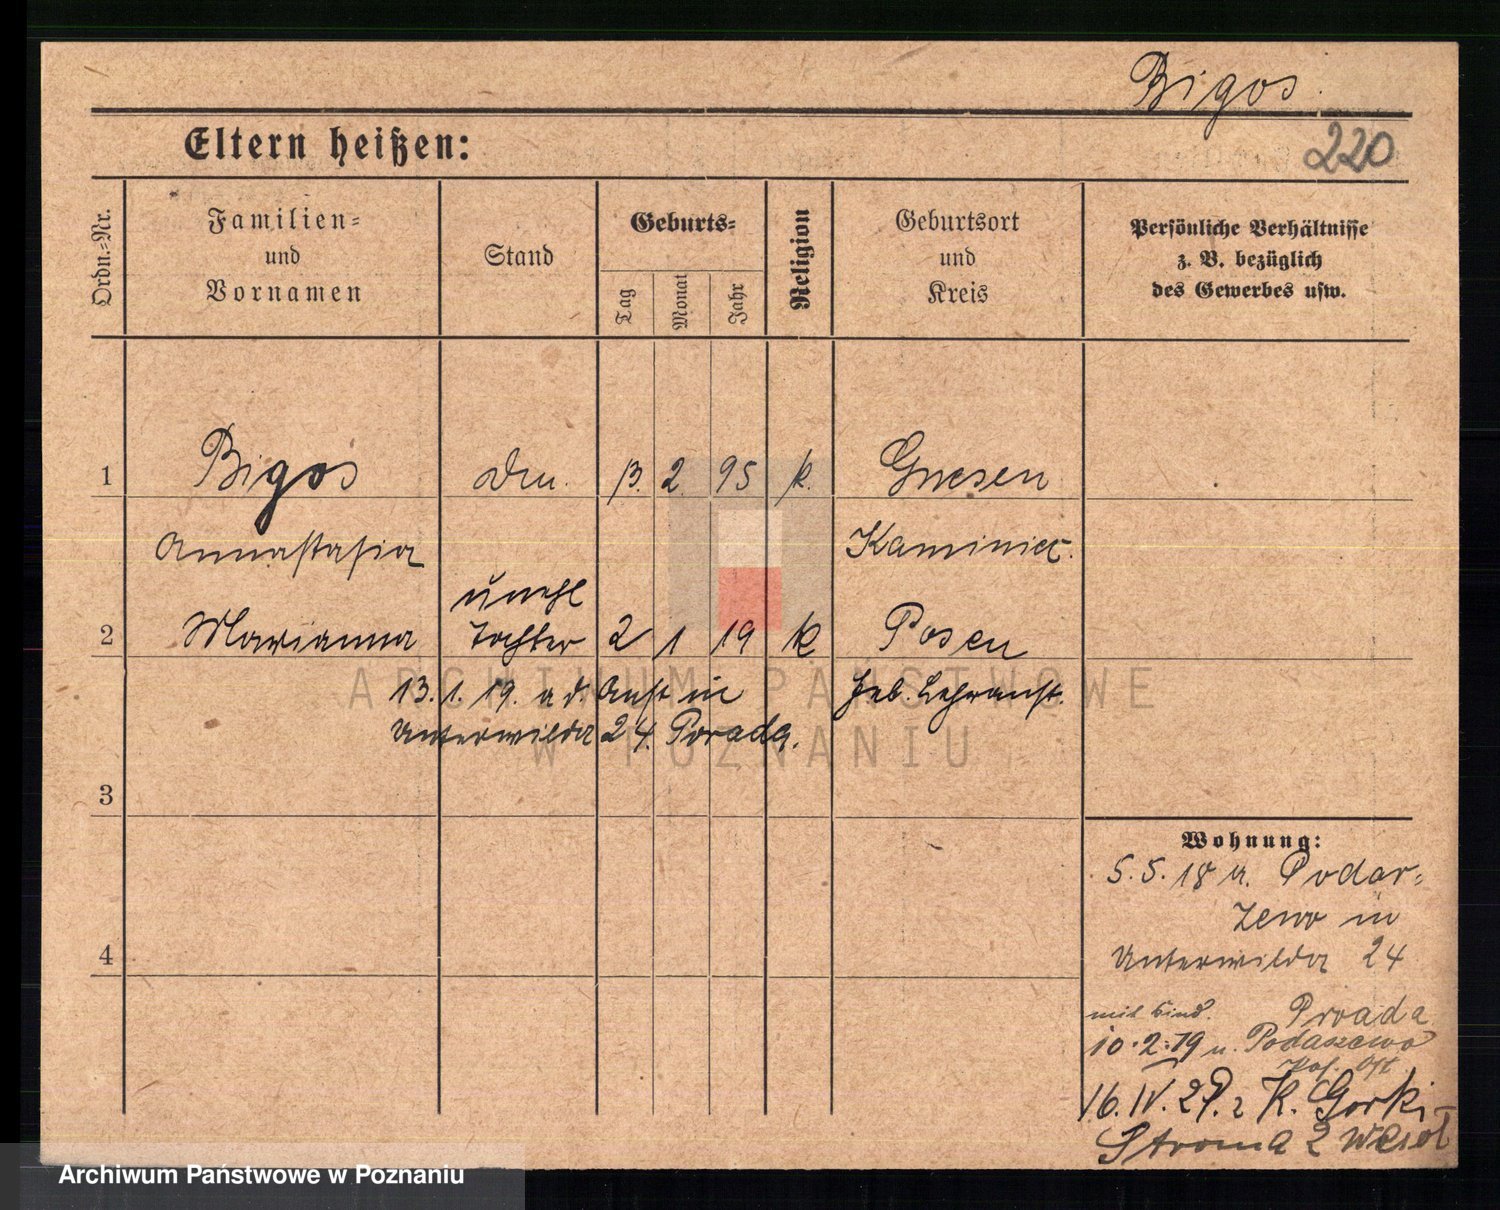 Bigos.
220
Eltern heißen:
Ordn.=Nr.
Familien=
und
Vornamen
Stand
Geburts=
Tag
Monat
Jahr
Religion
Geburtsort
und
Kreis
Persönliche Verhältnisse
z. B. bezüglich
des Gewerbes usw.
1 Bigos 13. 2. 95 k. Gnesen
Annastasia Kaminiec.
unehl
2 Marianna Tochter 2 1 19 k Posen
13. 1. 19. a. d. Anst in Heb. Lehranst.
Unterwilda 24. Porada.
3
4
Wohnung:
5. 5. 18 a. Podar=
zewo in
Unterwilda 24
mit Kind. Proada
10. 2. 19 n. Podaszewo
16. IV. 29. z K. Gorki
Stroma 2
ARCHIWUM PAŃSTWOWE
W POZNANIU
Archiwum Państwowe w Poznaniu